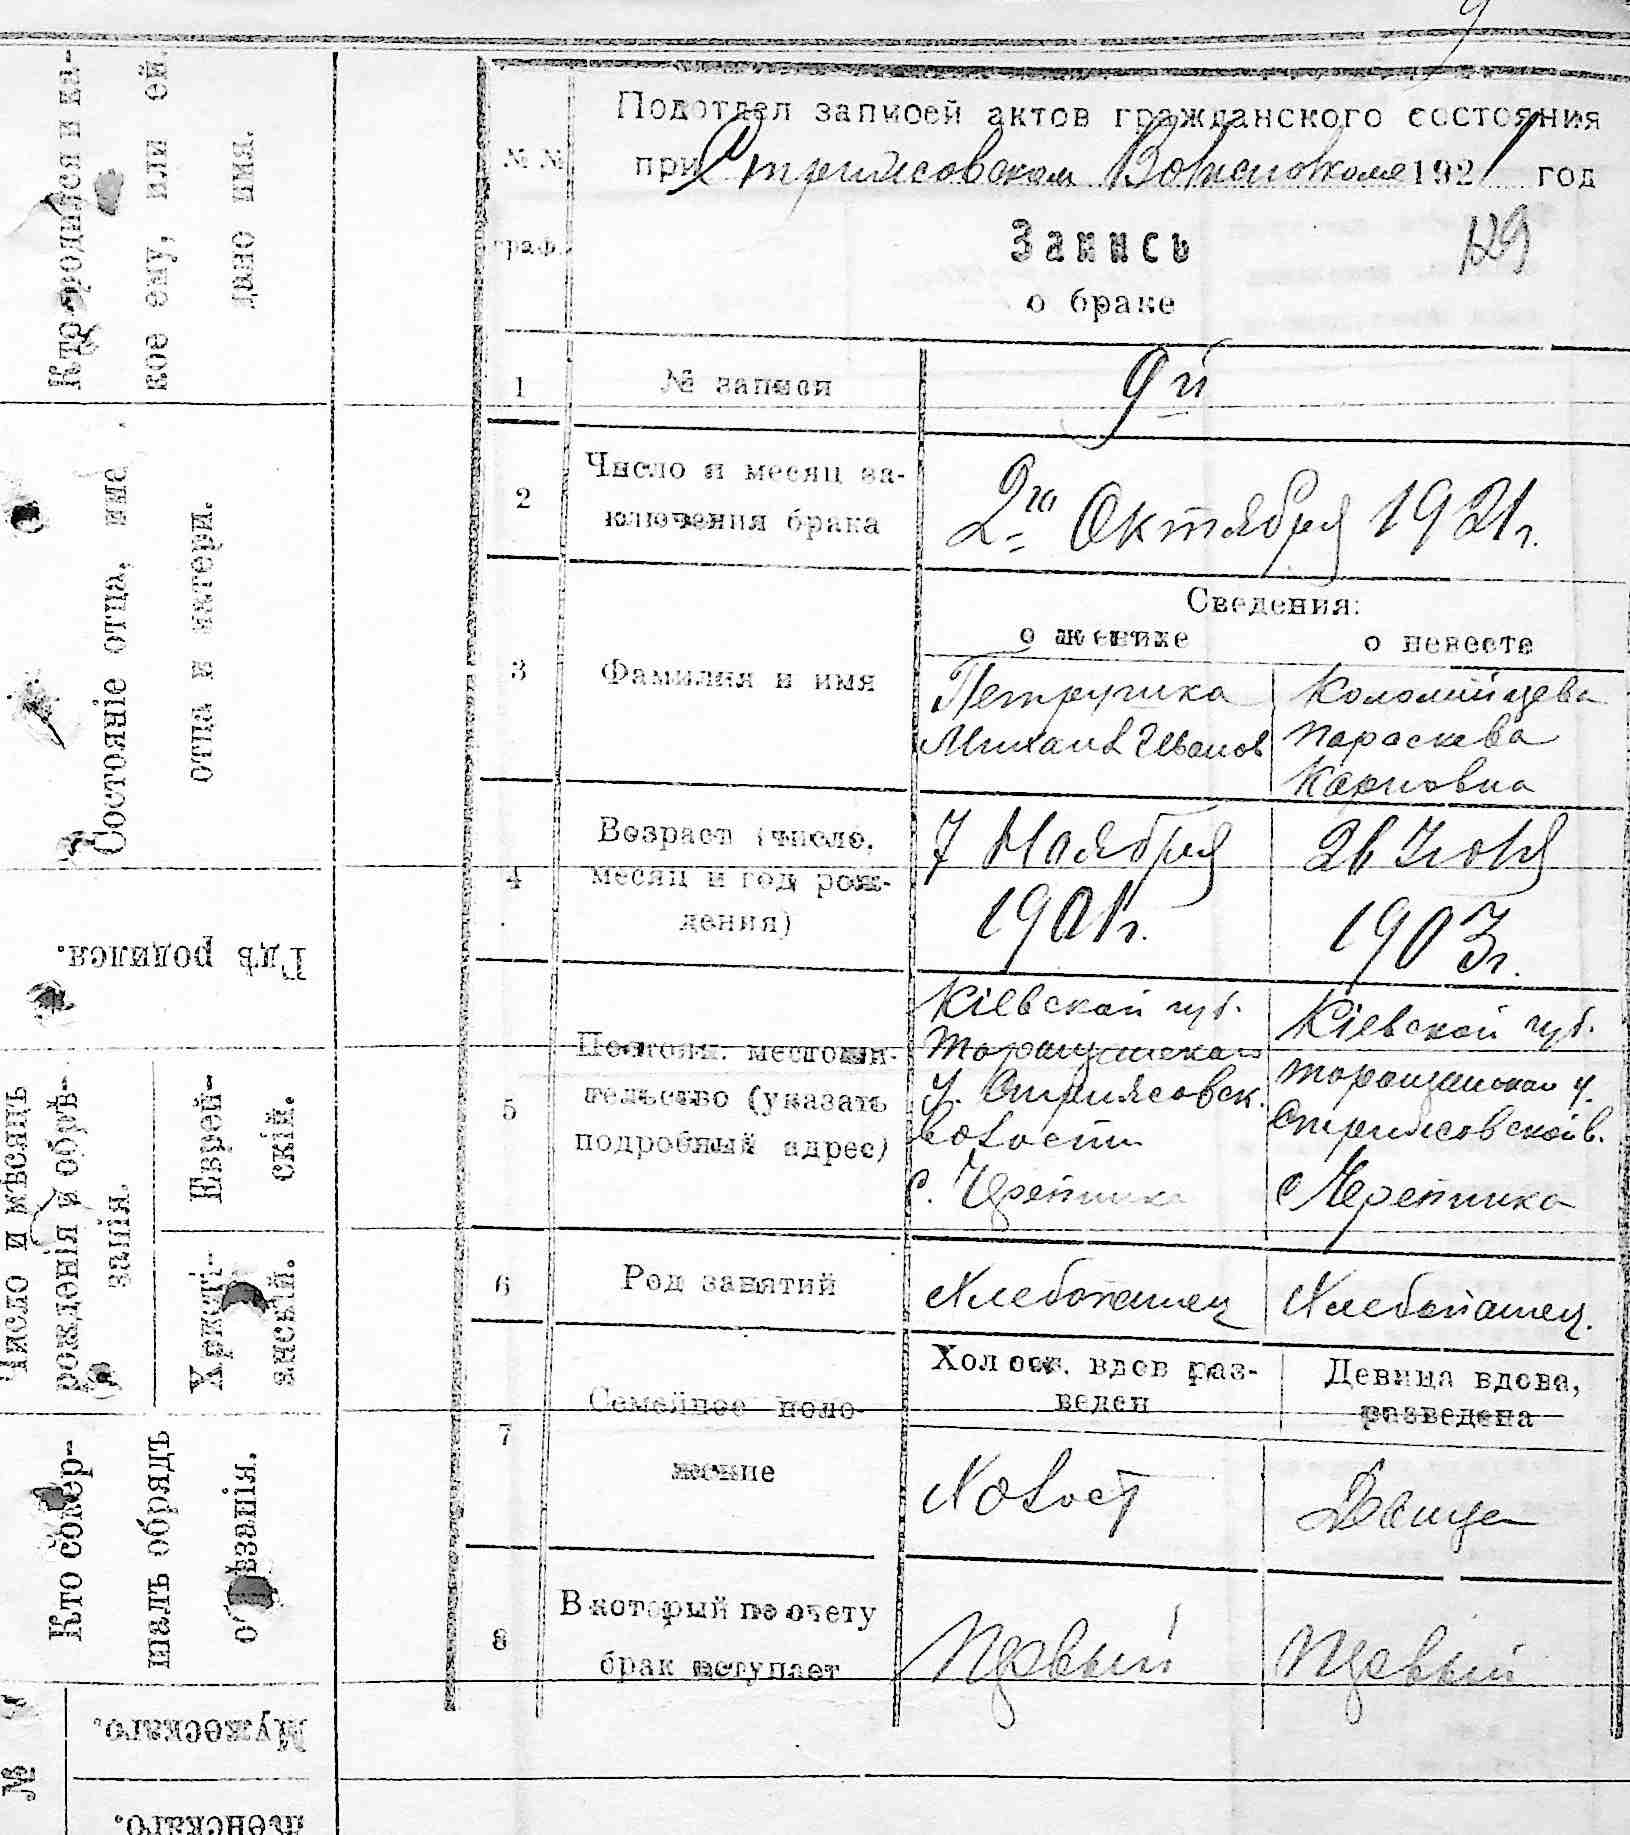 Подотдел записей актов гражданского состояния
при Стрижовском Волисполкоме 1921 год
№ №
граф.
Запись
о браке
129
1
№ записи
9й
2
Число и месяц за-
ключения брака
2го Октября 1921 г.
Сведения:
о женихе
о невесте
3
Фамилия и имя
Петрушка
Михаил Иванов
Коломийцева
Параскева
Карповна
4
Возраст (число,
месяц и год рож-
дения)
7 Ноября
1901 г.
26 Июля
1903 г.
5
Постоян. местожи-
тельство (указать
подробный адрес)
Кіевской губ.
Таращанскаго
у.
волости
с. Черепинка
Кіевской губ.
Таращанскаго у.
с. Черепинка
6
Род занятий
Хлебопашец
Хлебопашец.
7
Семейное поло-
жение
Холост. вдов раз-
веден
Девица вдова,
разведена
Холост
Девица
8
В который по счету
брак вступает
Первый
Первый
Кто родился и ка-
кое ему, или ей
дано имя.
Состояніе отца, има
отца и матери.
Гдѣ родился.
Число и мѣсяцъ
рожденія и обрѣ-
занія.
Еврей-
скій.
Христі-
анскій.
Кто совер-
шалъ обрядъ
обрѣзанія.
№
Мужескаго.
Женскаго.